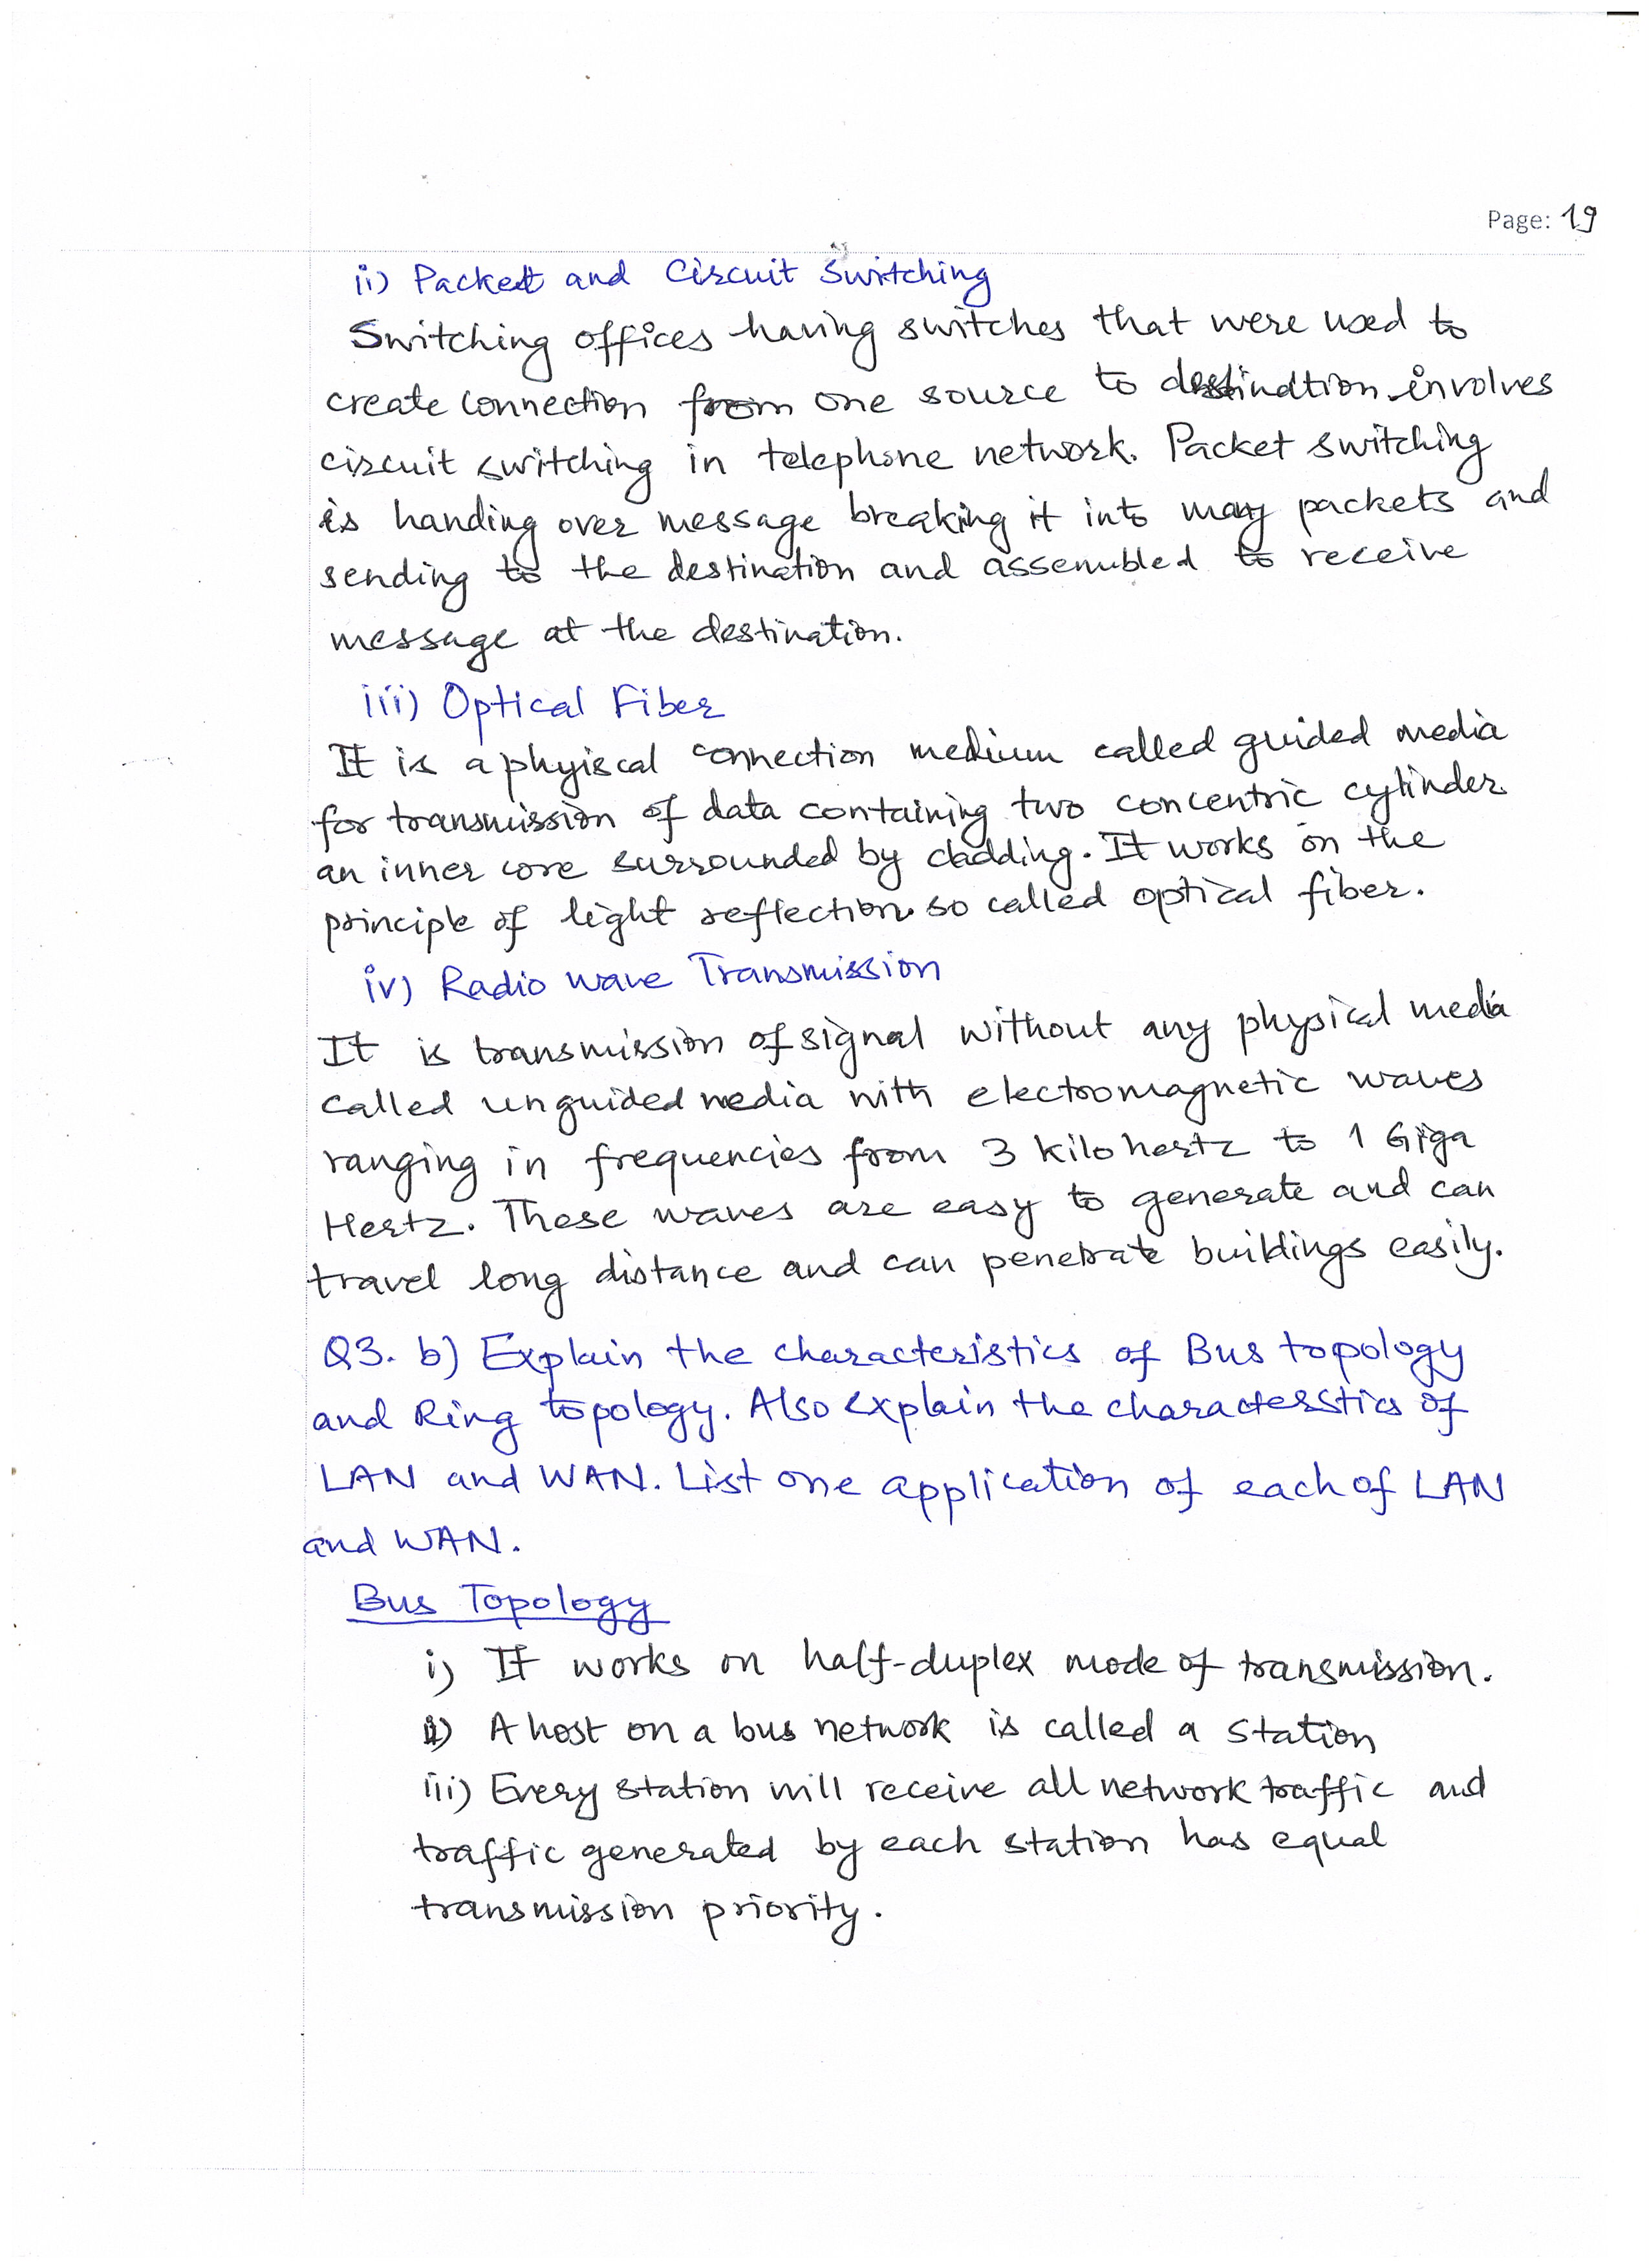 Page: 19
ii) Packet and Circuit Switching
Switching offices having switches that were used to
create connection from one source to destindtion involves
circuit switching in telephone network. Packet switching
is handing over message breaking it into many packets and
sending to the destination and assembled to receive
message at the destination.
iii) Optical Fiber
It is a phyiscal connection medium called guided media
for transmission of data containing two concentric cylinder
an inner core surrounded by cladding. It works on the
principle of light reflection so called optical fiber.
iv) Radio wave Transmission
It is transmission of signal without any physical media
called unguided media with electromagnetic waves
ranging in frequencies from 3 kilo hertz to 1 Giga
Hertz. These waves are easy to generate and can
travel long distance and can penetrate buildings easily.
Q3. b) Explain the characteristics of Bus topology
and Ring topology. Also explain the characterstics of
LAN and WAN. List one application of each of LAN
and WAN.
Bus Topology
i) It works on half-duplex mode of transmission.
ii) A host on a bus network is called a station
iii) Every station will receive all network traffic and
traffic generated by each station has equal
transmission priority.